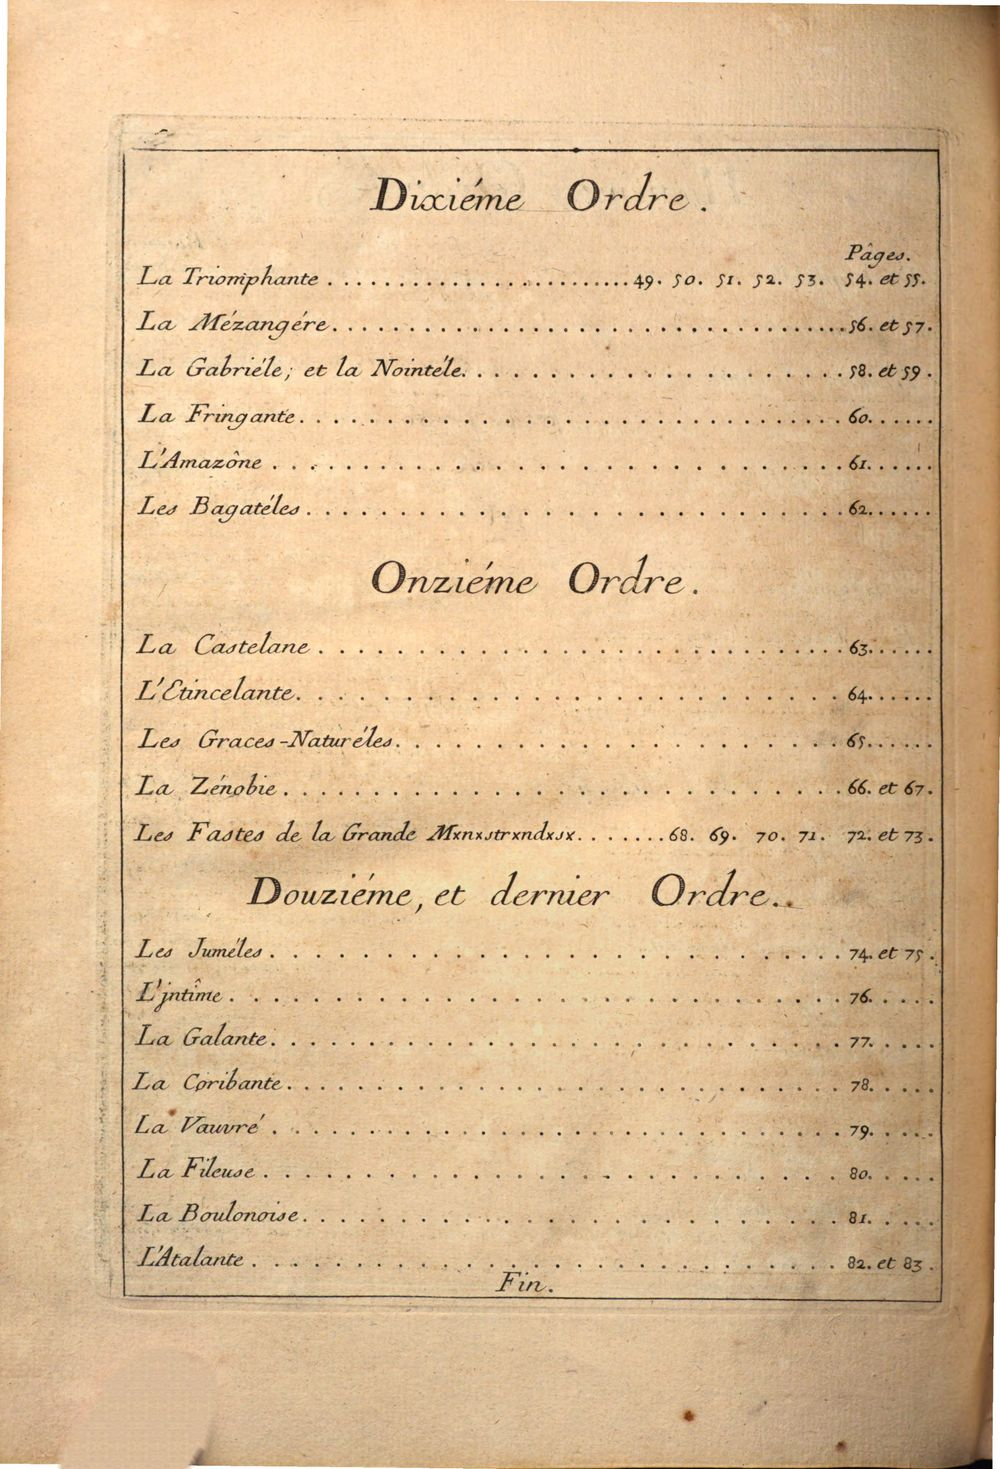 Dixiéme Ordre.
Pâges.
La Triomphante . . . . . . . . . . . . . . . . . . . . . . . 49. 50. 51. 52. 53. 54. et 55.
La Mézangére. . . . . . . . . . . . . . . . . . . . . . . . . . . . . . . . . . . 56. et 57.
La Gabriéle; et la Nointéle. . . . . . . . . . . . . . . . . . . . . . 58. et 59.
La Fringante. . . . . . . . . . . . . . . . . . . . . . . . . . . . . . . . 60. . . . . .
L'Amazône . . . . . . . . . . . . . . . . . . . . . . . . . . . 61. . . . . .
Les Bagatéles. . . . . . . . . . . . . . . . . . . . . . . . . . 62. . . . . .
Onziéme Ordre.
La Castelane . . . . . . . . . . . . . . . . . . . . . . . . . . . 63. . . . . .
L'Etincelante. . . . . . . . . . . . . . . . . . . . . . . . . . . 64. . . . . .
Les Graces-Naturéles. . . . . . . . . . . . . . . . . . . . . . 65. . . . . .
La Zénobie . . . . . . . . . . . . . . . . . . . . . . . . . . . . 66. et 67.
Les Fastes de la Grande Mxnxstrxndxsx. . . . . . . . 68. 69. 70. 71. 72. et 73.
Douziéme, et dernier Ordre.
Les Juméles . . . . . . . . . . . . . . . . . . . . . . . . . . 74. et 75.
L'jntîme . . . . . . . . . . . . . . . . . . . . . . . . . . . . . 76. . . . .
La Galante. . . . . . . . . . . . . . . . . . . . . . . . . . . . 77. . . . .
La Coribante. . . . . . . . . . . . . . . . . . . . . . . . . . . 78. . . . .
La Vauvré . . . . . . . . . . . . . . . . . . . . . . . . . . . . 79. . . . .
La Fileuse . . . . . . . . . . . . . . . . . . . . . . . . . . . . 80. . . . .
La Boulonoise. . . . . . . . . . . . . . . . . . . . . . . . . . 81. . . . .
L'Atalante . . . . . . . . . . . . . . . . . . . . . . . . . . . . 82. et 83.
Fin.